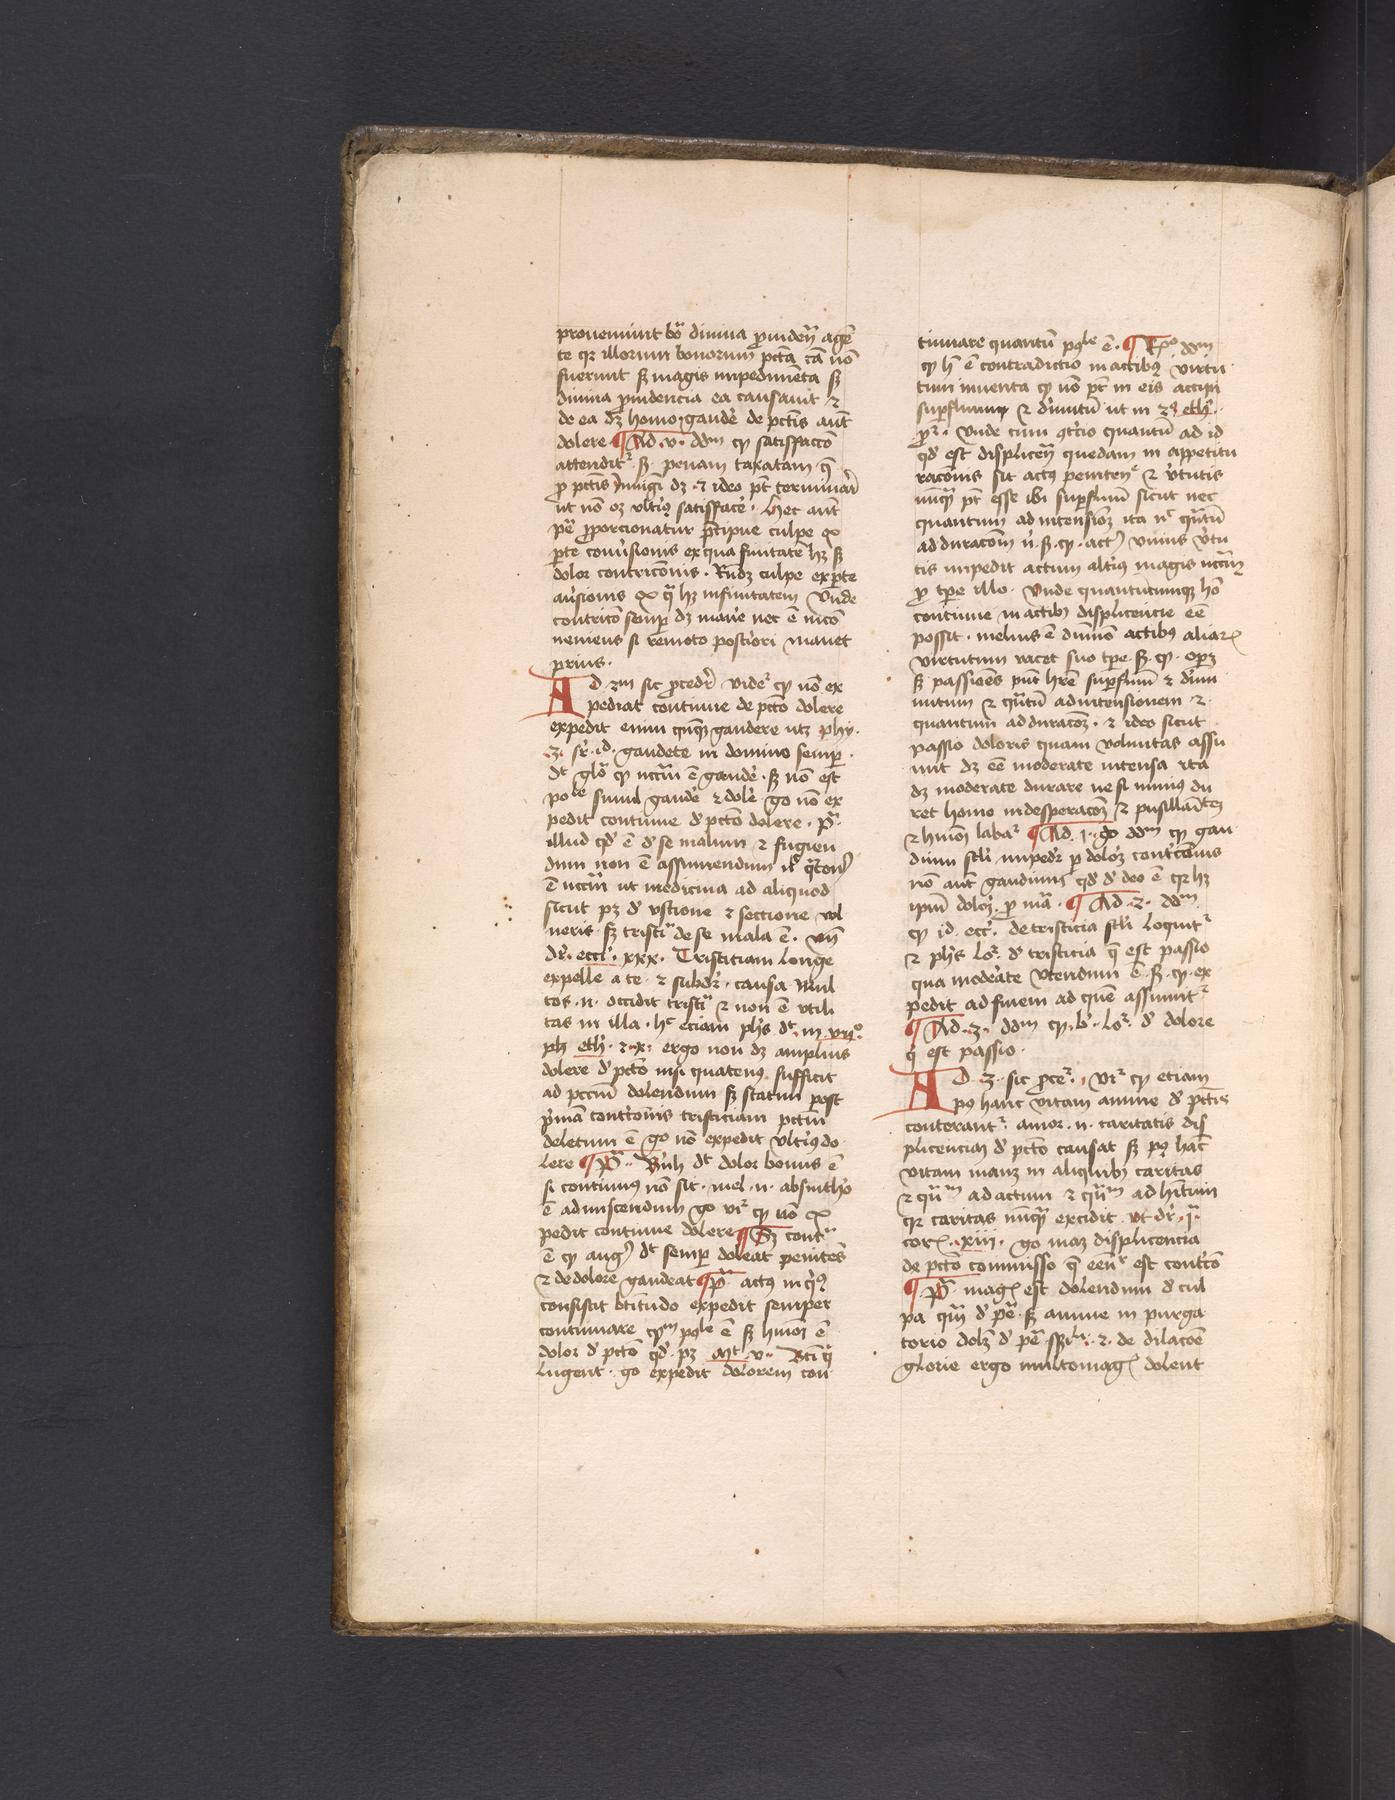 proueniunt bō diuina prouidēn agē
te qz illorum bonorum pctā cā nō
fuerunt sz magis impedimēta sz
diuina prouidencia ea causauit ⁊
de ea dz homo gaudē de pctīs aūt
dolere ¶ Ad .v. dōm qp satisfaccō
attenditr s. penam taxatam q̄
pro pctīs iniūgi dz ⁊ ideo pt terminari
ut nō oz vltius satisfacē . hec aūt
pē proporcionatur precipue culpe ex
parte conuersionis ex qua finitatē hz sz
dolor contricōnis . Rndz culpe ex parte
auersionis ex qua hz infinitatem vnde
contricō semper dz manēre nec ē incō
ueniens si remoto posteriori manet
prius .
Ad 2m sic procedr̄ videtr qp nō ex
pediat continue de pctō dolere
expedit enim qnqz gaudere utz phy.
3. sr̄. id. gaudete in domino semper .
dt glō qp nccm ē gaudē . sz nō est
pole simul gaudē ⁊ dolē go nō ex
pedit continue d' pctō dolere . P̄a.
illud qd' ē d' se malum ⁊ fugien
dum non ē assumendum
ē nccm ut medicina ad aliquod
sicut pz d' vstione ⁊ sectione vul
neris sz tristia de se mala ē . vn̄
dr̄. eccī. xxx. Tristitiam longe
expelle a te . ⁊ subdr̄. causa Mul
tos .n. occidit tristia ⁊ non ē vtili
tas in illa . hc etiam phs dt. in viio
ph eth. ⁊ .x. ergo non dz amplius
dolere d' pctō nisi quatenus sufficit
ad pccm̄ dolendum sz statim post
primā contricōnis tristiciam pctm
deletum ē go nō expedit vltius do
lere ¶ P̄a. Bnh dt dolor bonus ē
si continuus nō sit . mel .n. absinthō
ē admiscendum go vir qp nō ex
pedit continue dolere ¶ Sz contra
ē qp aug dt semper doleat penitēs
⁊ de dolore gaudeat ¶ P̄a actus in quibus
consistit btitudo expedit semper
continuare qm pole ē sz huiōi ē
dolor d' pctō qd' pz Mt .v. Bti qi
lugent . go expedit dolorem con
tinuare quantū pole ē. ¶ Rō dōm
qp h ē contradictio in actibus virtu
tum inuenta qp nō pt in eis accipi
superfluum ⁊ diminutū ut in 2 eth.
pr. Vnde cum contricō quantū ad id
qd' est displicēn quedam in appetitu
racōnis sit actus penitenc ⁊ vtutis
nūqz pt esse ibi superfluū sicut nec
quantum ad intensiōz ita nc quātū
ad duracōm n. s. qp . actus vnius vtu
tis impedit actum alterius magis nccm
pro tpe illo . Vnde quantūcumqz hō
continue in actibus displicencie eē
possit . melius ē dūmō actibus aliarum
virtutum vacet suo tpe . s. qp . oprz
sz passiōes pnt hrē superfluū ⁊ dimi
nutum ⁊ quātū ad intensionem ⁊
quantum ad duracōz . ⁊ ideo sicut
passio doloris quam voluntas assu
mit dz eē moderate intensa ita
dz moderate durare ne si nimis du
ret homo in desperacōz ⁊ pusillanītez
⁊ huiōi labar ¶ Ad .1. go dōm qp gau
dium scli impedr̄ p dolorz contricōnis
nō aūt gaudium qd' d' deo ē qz hz
ipm dolorz p mā . ¶ Ad .2. dōm
qp id . eccc. de tristicia scli loquitr
⁊ phs lor. d' tristicia q̄ est passio
qua moderate vtendum ē . s. qp . ex
pedit ad finem ad quē assumitr
¶ Ad .3. dōm qp . b. lor. d' dolore
qi est passio .
Ad .3. sic procer. vir qp etiam
pq hanc vitam anime d' pctīs
conterantr . amor .n. caritatis dis
plicenciam d' pctō causat sz pq hāc
vitam manz in aliquibus caritas
⁊ qūm ad actum ⁊ qūm ad hitum
qz caritas nūqz excidit ut dr̄ .i.
cor. xiii. go manz displicencia
de pctō commisso q̄ eēnr est contricō
¶ P̄a magis est dolendum d' cul
pa qm d' pē . sz anime in purga
torio dolēt d' pē ⁊ de dilacōe
glorie ergo multomagis dolent